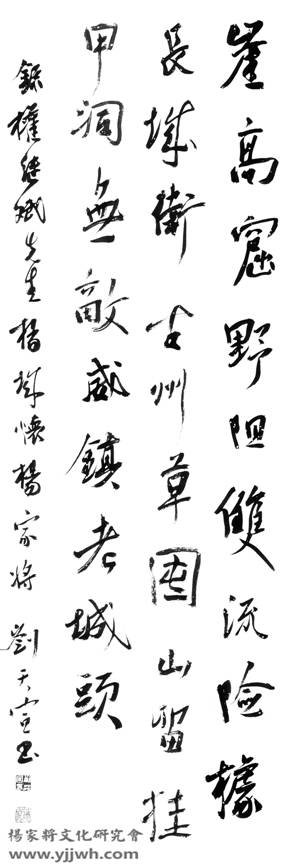 崖高窟野阻雙流險據
長城衛古州草山留挂
甲洞無敵威鎮老城頭
錄權繼斌先生楊城懷楊家將 劉天宣書
楊家將文化研究會
www.yjjwh.com